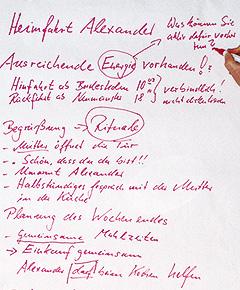 Heimfahrt Alexander
Was können Sie
aktiv dafür
tun?
Ausreichende Energie vorhanden!?
Hinfahrt ab Budesheim 10⁰⁰
Rückfahrt ab 18⁰⁰
verbindlich!
nicht
Begrüßung → Rituale
- Mutter öffnet die Tür
- Schön, dass du da bist!!
- Umarmt Alexander
- Halbstündiges Gespräch mit der Mutter
in der Küche
Planung des Wochenendes
- Gemeinsame Mahlzeiten
→ Einkauf gemeinsam
Alexander darf beim Kochen helfen